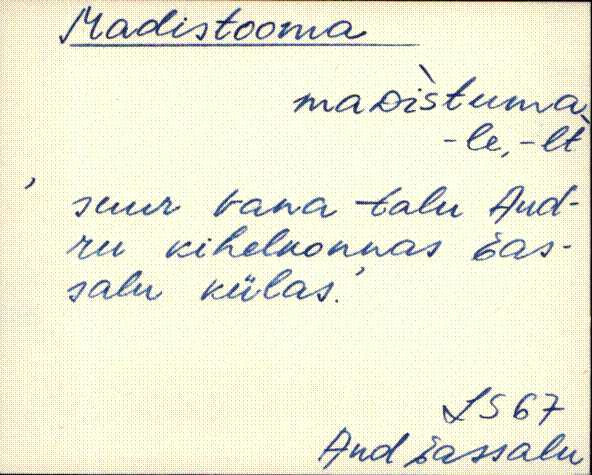 Madistooma
maᴅìstuma
-le, -lt
' suur vana talu Aud-
ru kihelkonnas Eas-
salu külas.'
LS 67
Aud Eassalu